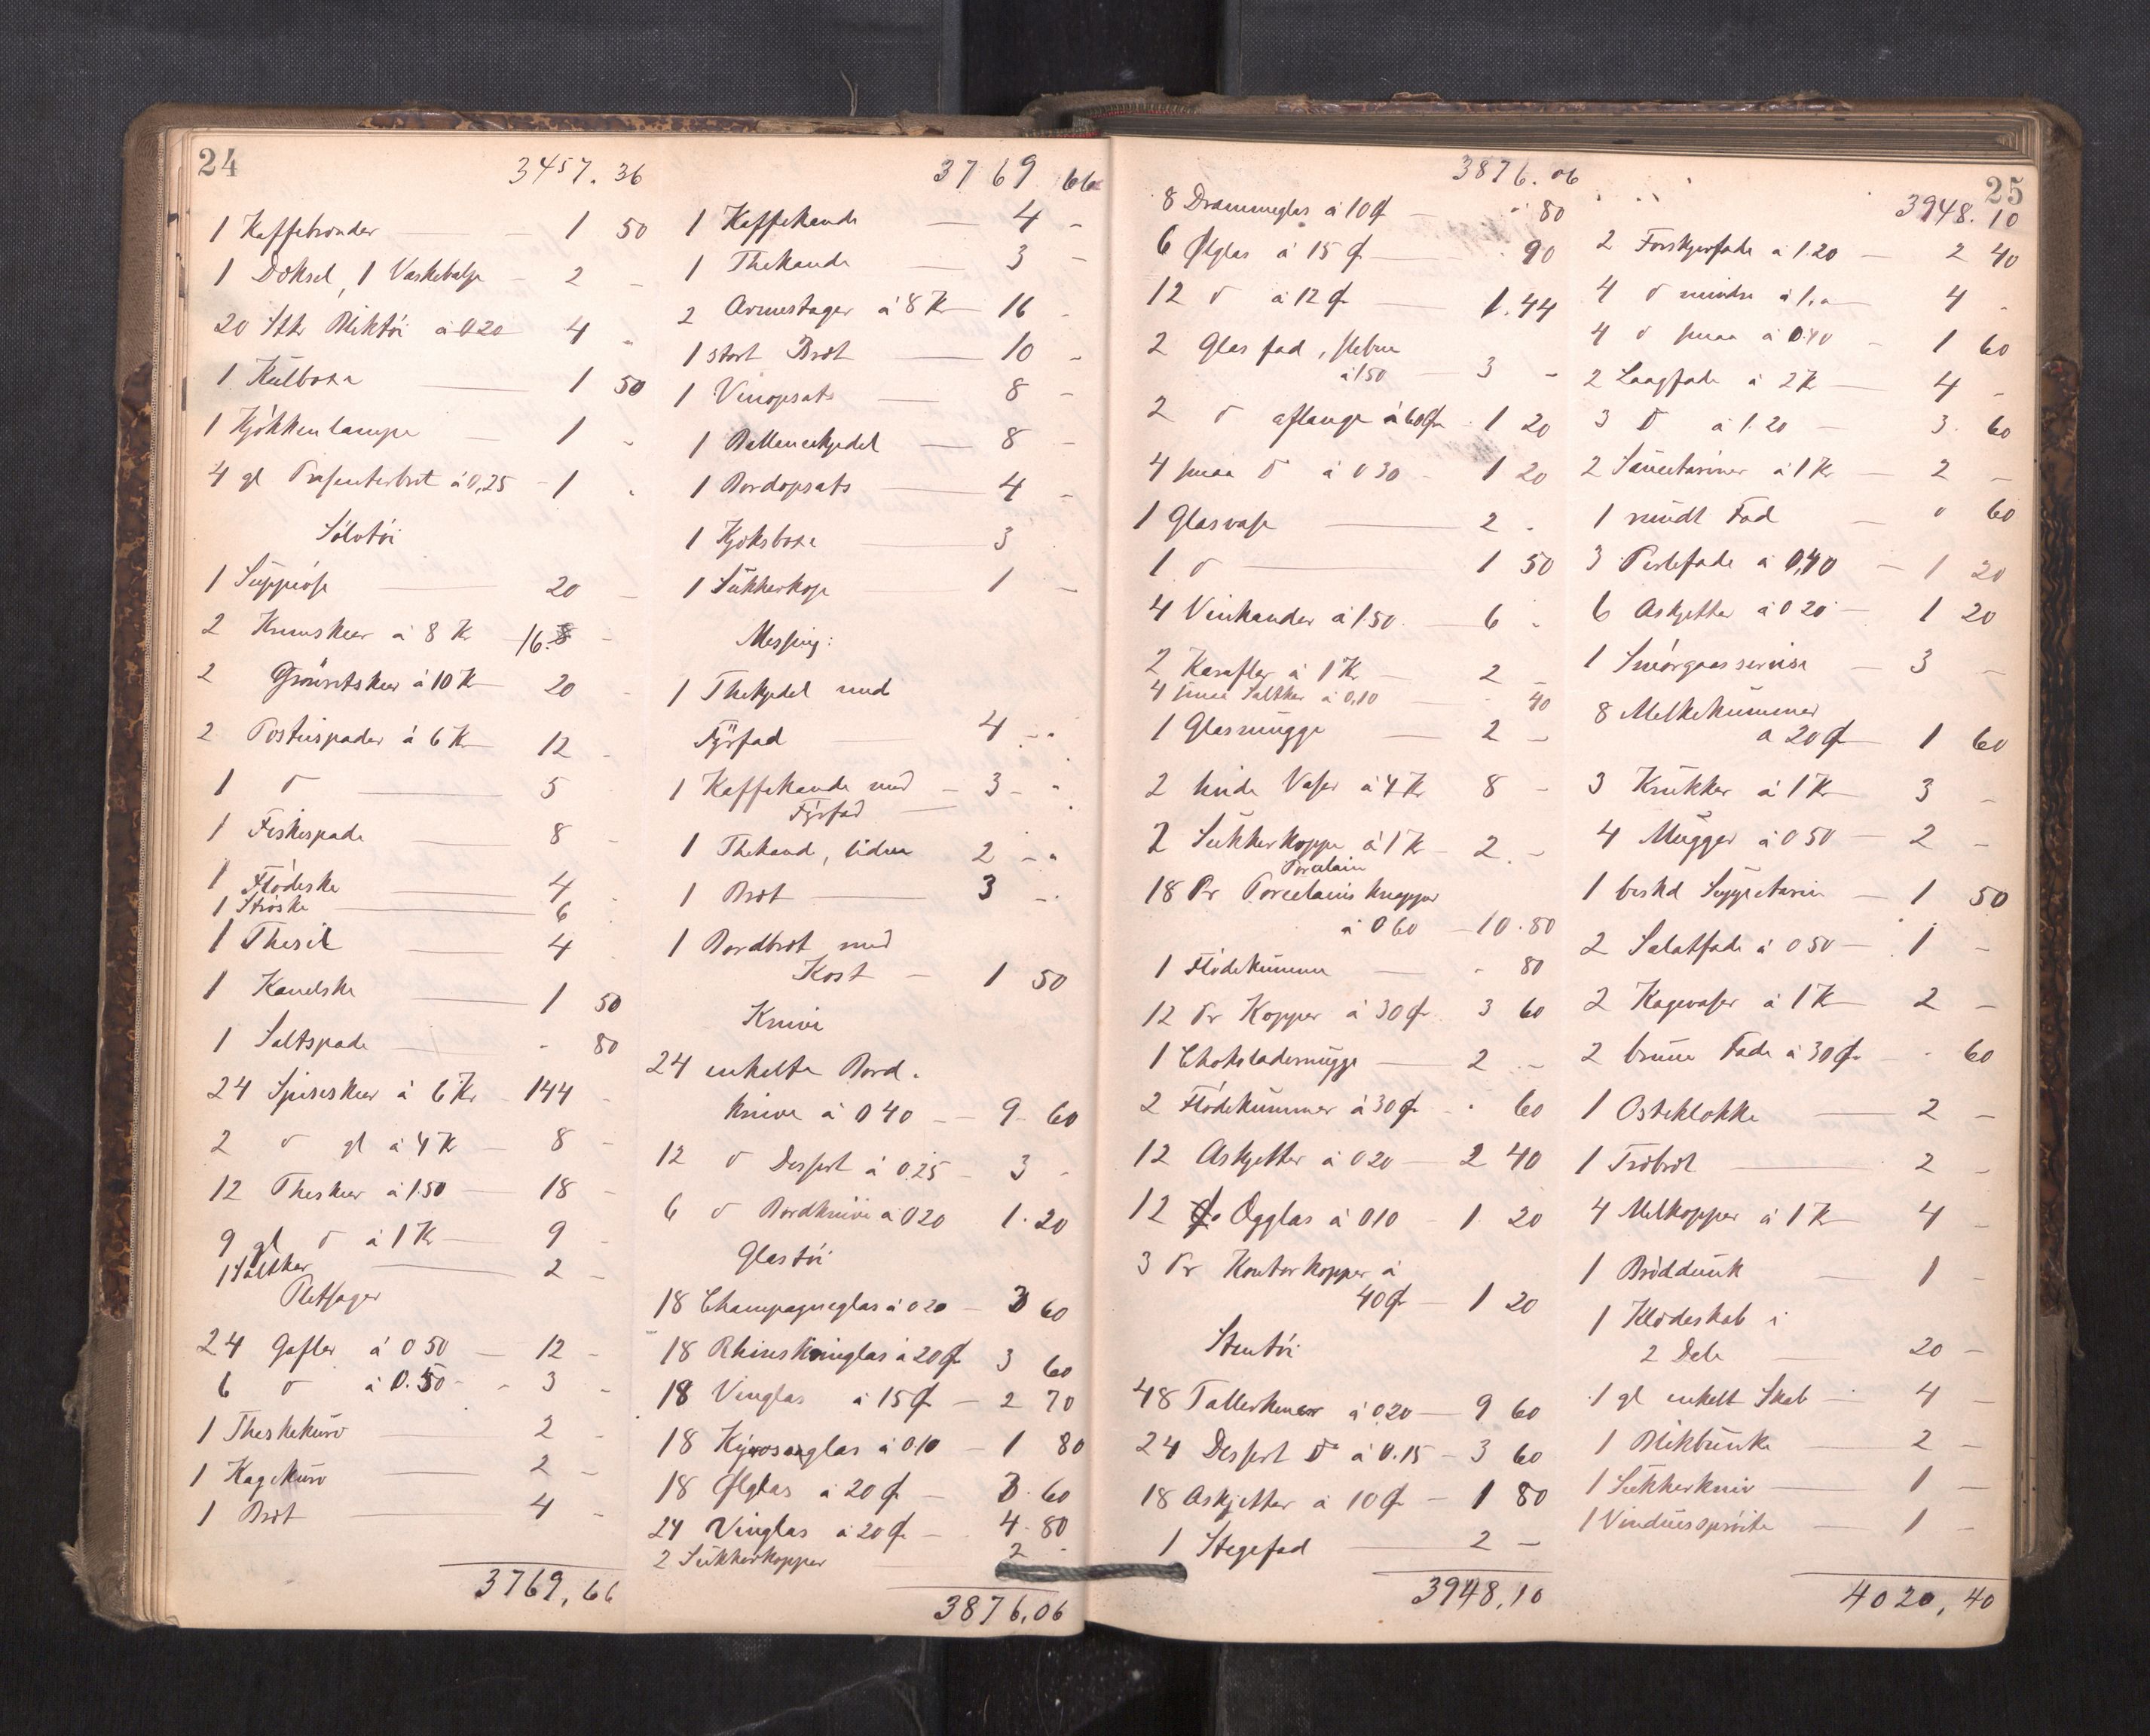 24
3457.36
1 Kaffebrænder — 1 50
1 Dørksel, 1 Vaskebalje - 2 -
20 Stkr Bliktøi á 0 20 4 -
1 Kulboxe — 1 50
1 Kjøkkenlampe — 1 -
4 gl Præsenterbret á 0,25 - 1 -
Sølvtøi
1 Suppeøse — 20 -
2 Krumskeer á 8 Kr 16. -
2 Grøntskeer á 10 Kr 20 -
2 Posteispader á 6 Kr 12 -
1 d — 5 -
1 Fiskespade — 8 -
1 Flødeske — 4 -
1 Strøske — 6 -
1 Thesil — 4 -
1 Kanelske — 1 50
1 Saltspade — - 80
24 Spiseskeer á 6 Kr - 144 -
2 d gl á 4 Kr 8 -
12 Theskeer á 1.50 — 18 -
9 gl d á 1 Kr — 9 -
1 Saltkar — 2 -
Pletsager
24 Gafler á 0 50 — 12 -
6 d á 0.50 - - 3 -
1 Theskekurv — 2 -
1 Kagekurv — 2 -
1 Bret — 4 -
3769,66
3769 66
1 Kaffekande — 4 -
1 Thekande — 3 -
2 Armestager á 8 Kr 16 -
1 stort Bret — 10 -
1 Vinopsats — 8 -
1 Bouillonkjedel — 8 -
1 Bordopsats — 4 -
1 Kjeksboxe — 3
1 Sukkerkop — 1 -
Messing:
1 Thekjedel med
Fyrfad — 4 -
1 Kaffekande med — 3 -
Fyrfad
1 Thekand, liden 2 -
1 Bret — 3 -
1 Bordbret med
Kost — 1 50
Knive
24 enkelte Bord.
knive á 0 40 — 9 60
12 d Dessert á 0.25 - 3 -
6 d Bordknive á 0 20 1.20
Glastøi
18 Champagneglas á 0 20 — 3 60
18 Rhinskvinglas á 20 Ø 3 60
18 Vinglas á 15 Ø — 2 70
18 Kyrosaglas á 0.10 — 1 80
18 Ølglas á 20 Ø — 3.60
24 Vinglas á 20 Ø — 4.80
2 Sukkerkopper — 2 -
3876,06
3876.06
8 Drammeglas á 10 Ø — - 80
6 Ølglas á 15 Ø — - 90
12 d á 12 Ø — 1.44
2 Glas fad, slebne
á 1 50 — 3 -
2 d aflange á 60 Ø 1 20
4 smaa d á 0 30 - 1 20
1 Glasvase — 2 -
1 d — 1 50
4 Vinkander á 1.50 - 6 -
2 Karafler á 1 Kr — 2 -
4 smaa Saltkar á 0,10 — 40
1 Glasmugge — 2 -
2 hvide Vaser á 4 Kr 8 -
2 Sukkerkoppe á 1 Kr 2 -
Porcelain
18 Pr Porcelains kopper
á 0 60 - 10.80
1 Flødekumme — - 80
12 Pr Kopper á 30 Ø 3 60
1 Chokolademugge — 2 -
2 Flødekummer á 30 Ø - 60
12 Askjetter á 0 20 — 2 40
12 Egglas á 0 10 - 1 20
3 Pr Kontorkopper á
40 Ø — 1 20
Stentøi
48 Tallerkener á 0.20 — 9 60
24 Dessert d á 0.15 - 3 60
18 Askjetter á 10 Ø - 1 80
1 Stegefad — 2 -
3948,10
25
3948.10
2 Forskjærfade á 1.20 — 2 40
4 d mindre á 1,- 4 -
4 d smaa á 0.40 - 1 60
2 Laagfade á 2 Kr — 4 -
3 d á 1.20 — 3 60
2 Sauceteriner á 1 Kr — 2 -
1 rundt Fad — 0 60
3 Postefade á 0,40 — 1 20
6 Askjetter á 0 20 — 1 20
1 Smørgaasservise — 3 -
8 Melkekummer
a 20 Ø — 1 60
3 Krukker á 1 Kr 3 -
4 Mugger á 0 50 — 2 -
1 beskd Suppeterrin — 1 50
2 Salatfade á 0 50 — 1 -
2 Kagevaser á 1 Kr 2 -
2 brune Fade á 30 Ø — - 60
1 Osteklokke — 2 -
1 Træbret — 2 -
4 Melkopper á 1 Kr 4 -
1 Brøddunk — 1 -
1 Klædeskab i
2 Dele — 20 -
1 gl enkelt Skab — 4 -
1 Blikbunke — 2 -
1 Sukkerkniv — 1 -
1 Vinduessprøite — 1 -
4020,40